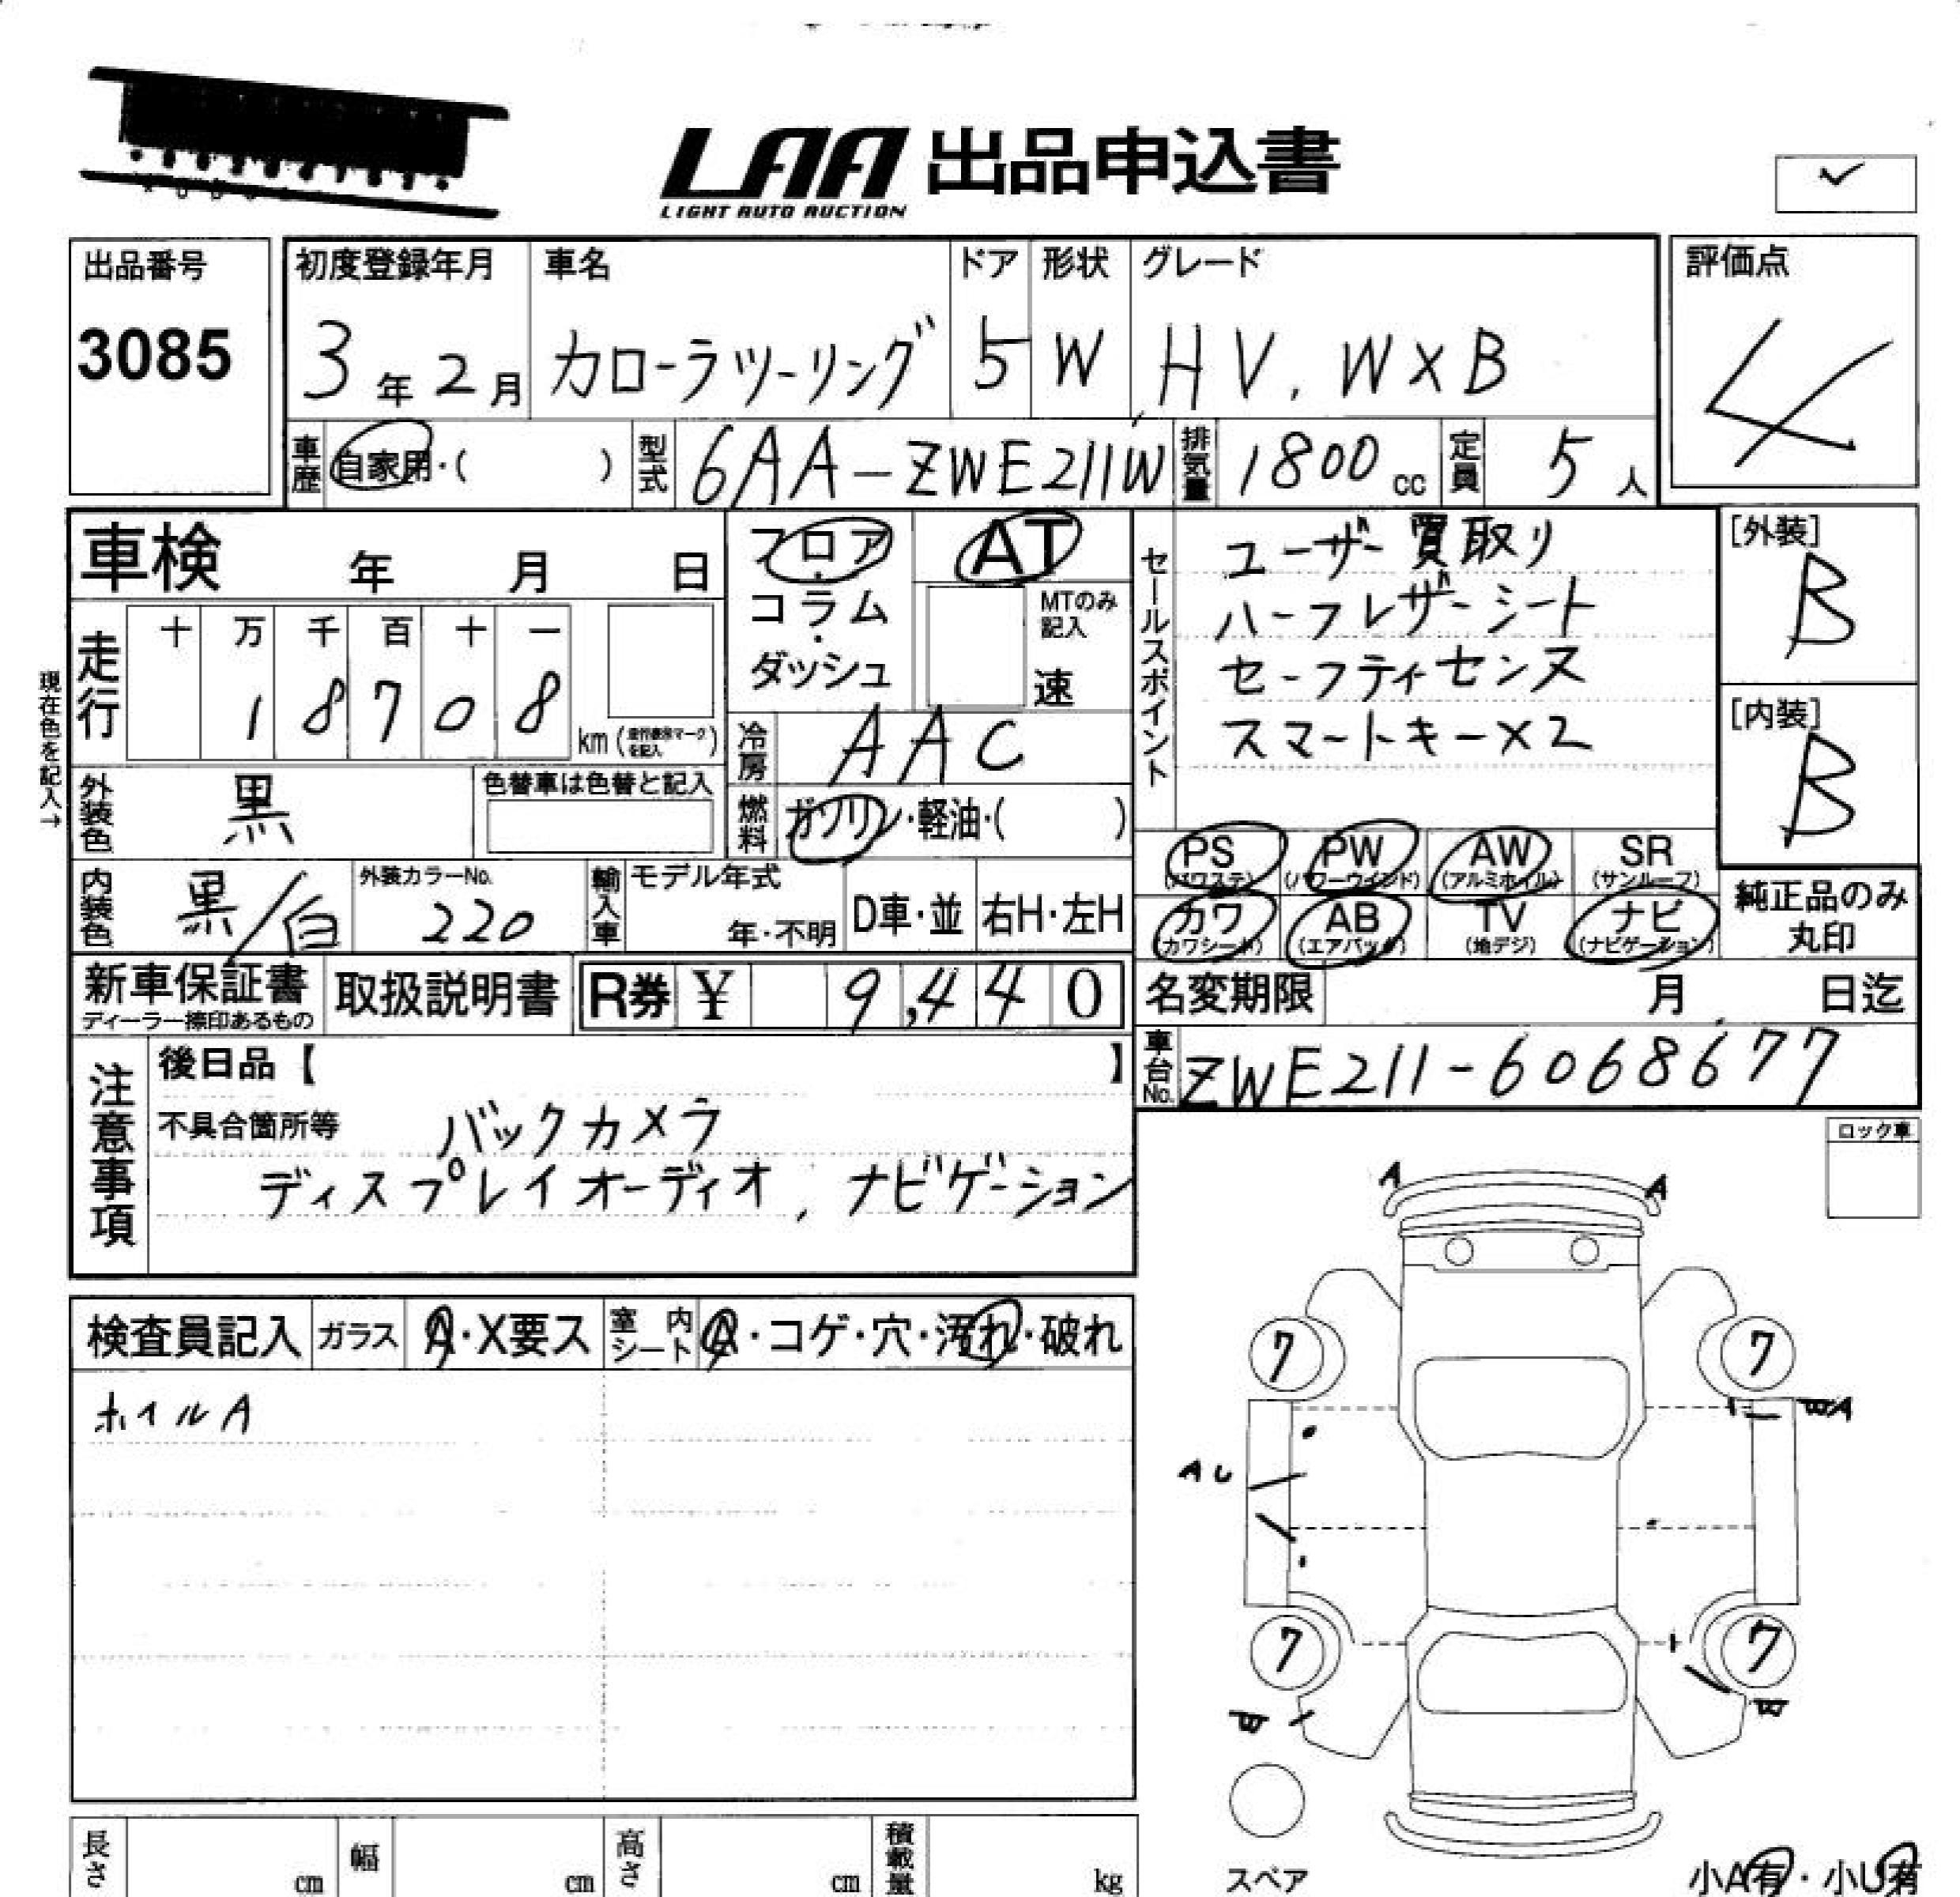 LAA 出品申込書
LIGHT AUTO AUCTION
✓
出品番号
3085
初度登録年月
3年2月
車名
カローラツーリング
ドア
5
形状
W
グレード
HV, WXB
評価点
4
車歴
自家用・( )
型式
6AA-ZWE211W
排気量
1800 cc
定員
5人
車検 年 月 日
フロア・コラム・ダッシュ
AT
MTのみ記入
速
セールスポイント
ユーザー買取り
ハーフレザーシート
セーフティセンス
スマートキー×2
[外装]
B
[内装]
B
現在色を記入→
走行
十 万 千 百 十 一
1 8 7 0 8
km
冷房
AAC
外装色
黒
色替車は色替と記入
燃料
ガソリン・軽油・( )
PS (パワステ)
PW (パワーウインド)
AW (アルミホイル)
SR (サンルーフ)
カワ (カワシート)
AB (エアバック)
TV (地デジ)
ナビ (ナビゲーション)
純正品のみ
丸印
内装色
黒/白
外装カラーNo.
220
輸入車
モデル年式
年・不明
D車・並
右H・左H
新車保証書
ディーラー捺印あるもの
取扱説明書
R券 ¥ 9,440
名変期限 月 日迄
車台No.
ZWE211-6068677
注意事項
後日品【 】
不具合箇所等
バックカメラ
ディスプレイオーディオ, ナビゲーション
ロック車
検査員記入
ガラス
A・X要ス
室内シート
A・コゲ・穴・汚れ・破れ
ホイルA
A A
7 7
AU
7 7
スペア
長さ cm
幅 cm
高さ cm
積載量 kg
小A有・小U有